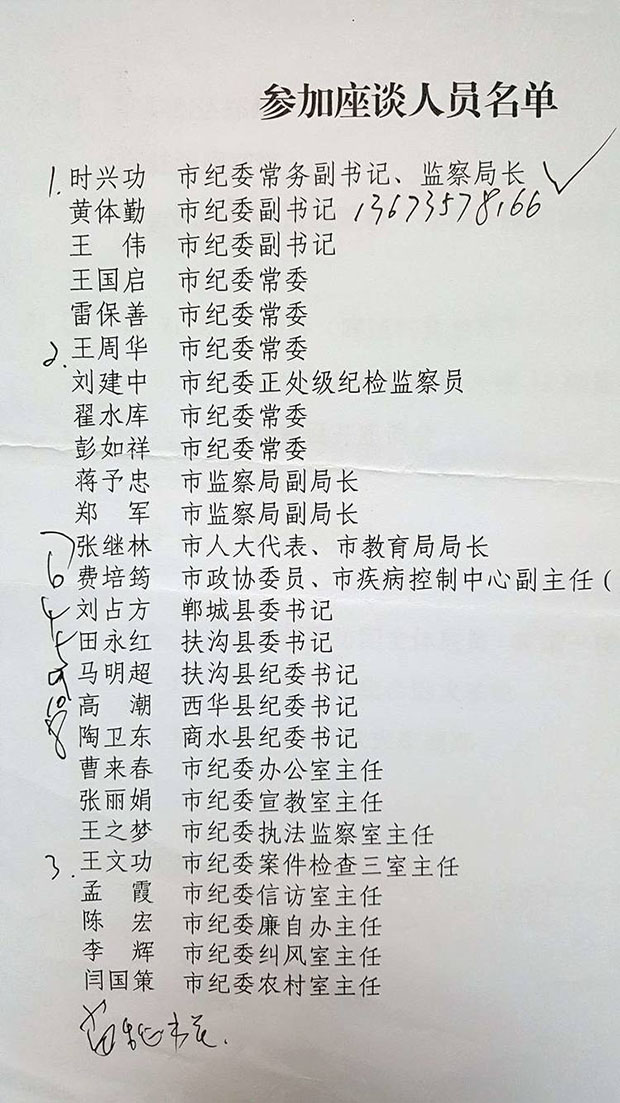 参加座谈人员名单
1. 时兴功 市纪委常务副书记、监察局长
黄体勤 市纪委副书记 13673578166
王 伟 市纪委副书记
王国启 市纪委常委
雷保善 市纪委常委
2. 王周华 市纪委常委
刘建中 市纪委正处级纪检监察员
翟水库 市纪委常委
彭如祥 市纪委常委
蒋予忠 市监察局副局长
郑 军 市监察局副局长
7 张继林 市人大代表、市教育局局长
6 费培筠 市政协委员、市疾病控制中心副主任(
4 刘占方 郸城县委书记
5 田永红 扶沟县委书记
9 马明超 扶沟县纪委书记
10 高 潮 西华县纪委书记
8 陶卫东 商水县纪委书记
曹来春 市纪委办公室主任
张丽娟 市纪委宣教室主任
王之梦 市纪委执法监察室主任
3. 王文功 市纪委案件检查三室主任
孟 霞 市纪委信访室主任
陈 宏 市纪委廉自办主任
李 辉 市纪委纠风室主任
闫国策 市纪委农村室主任